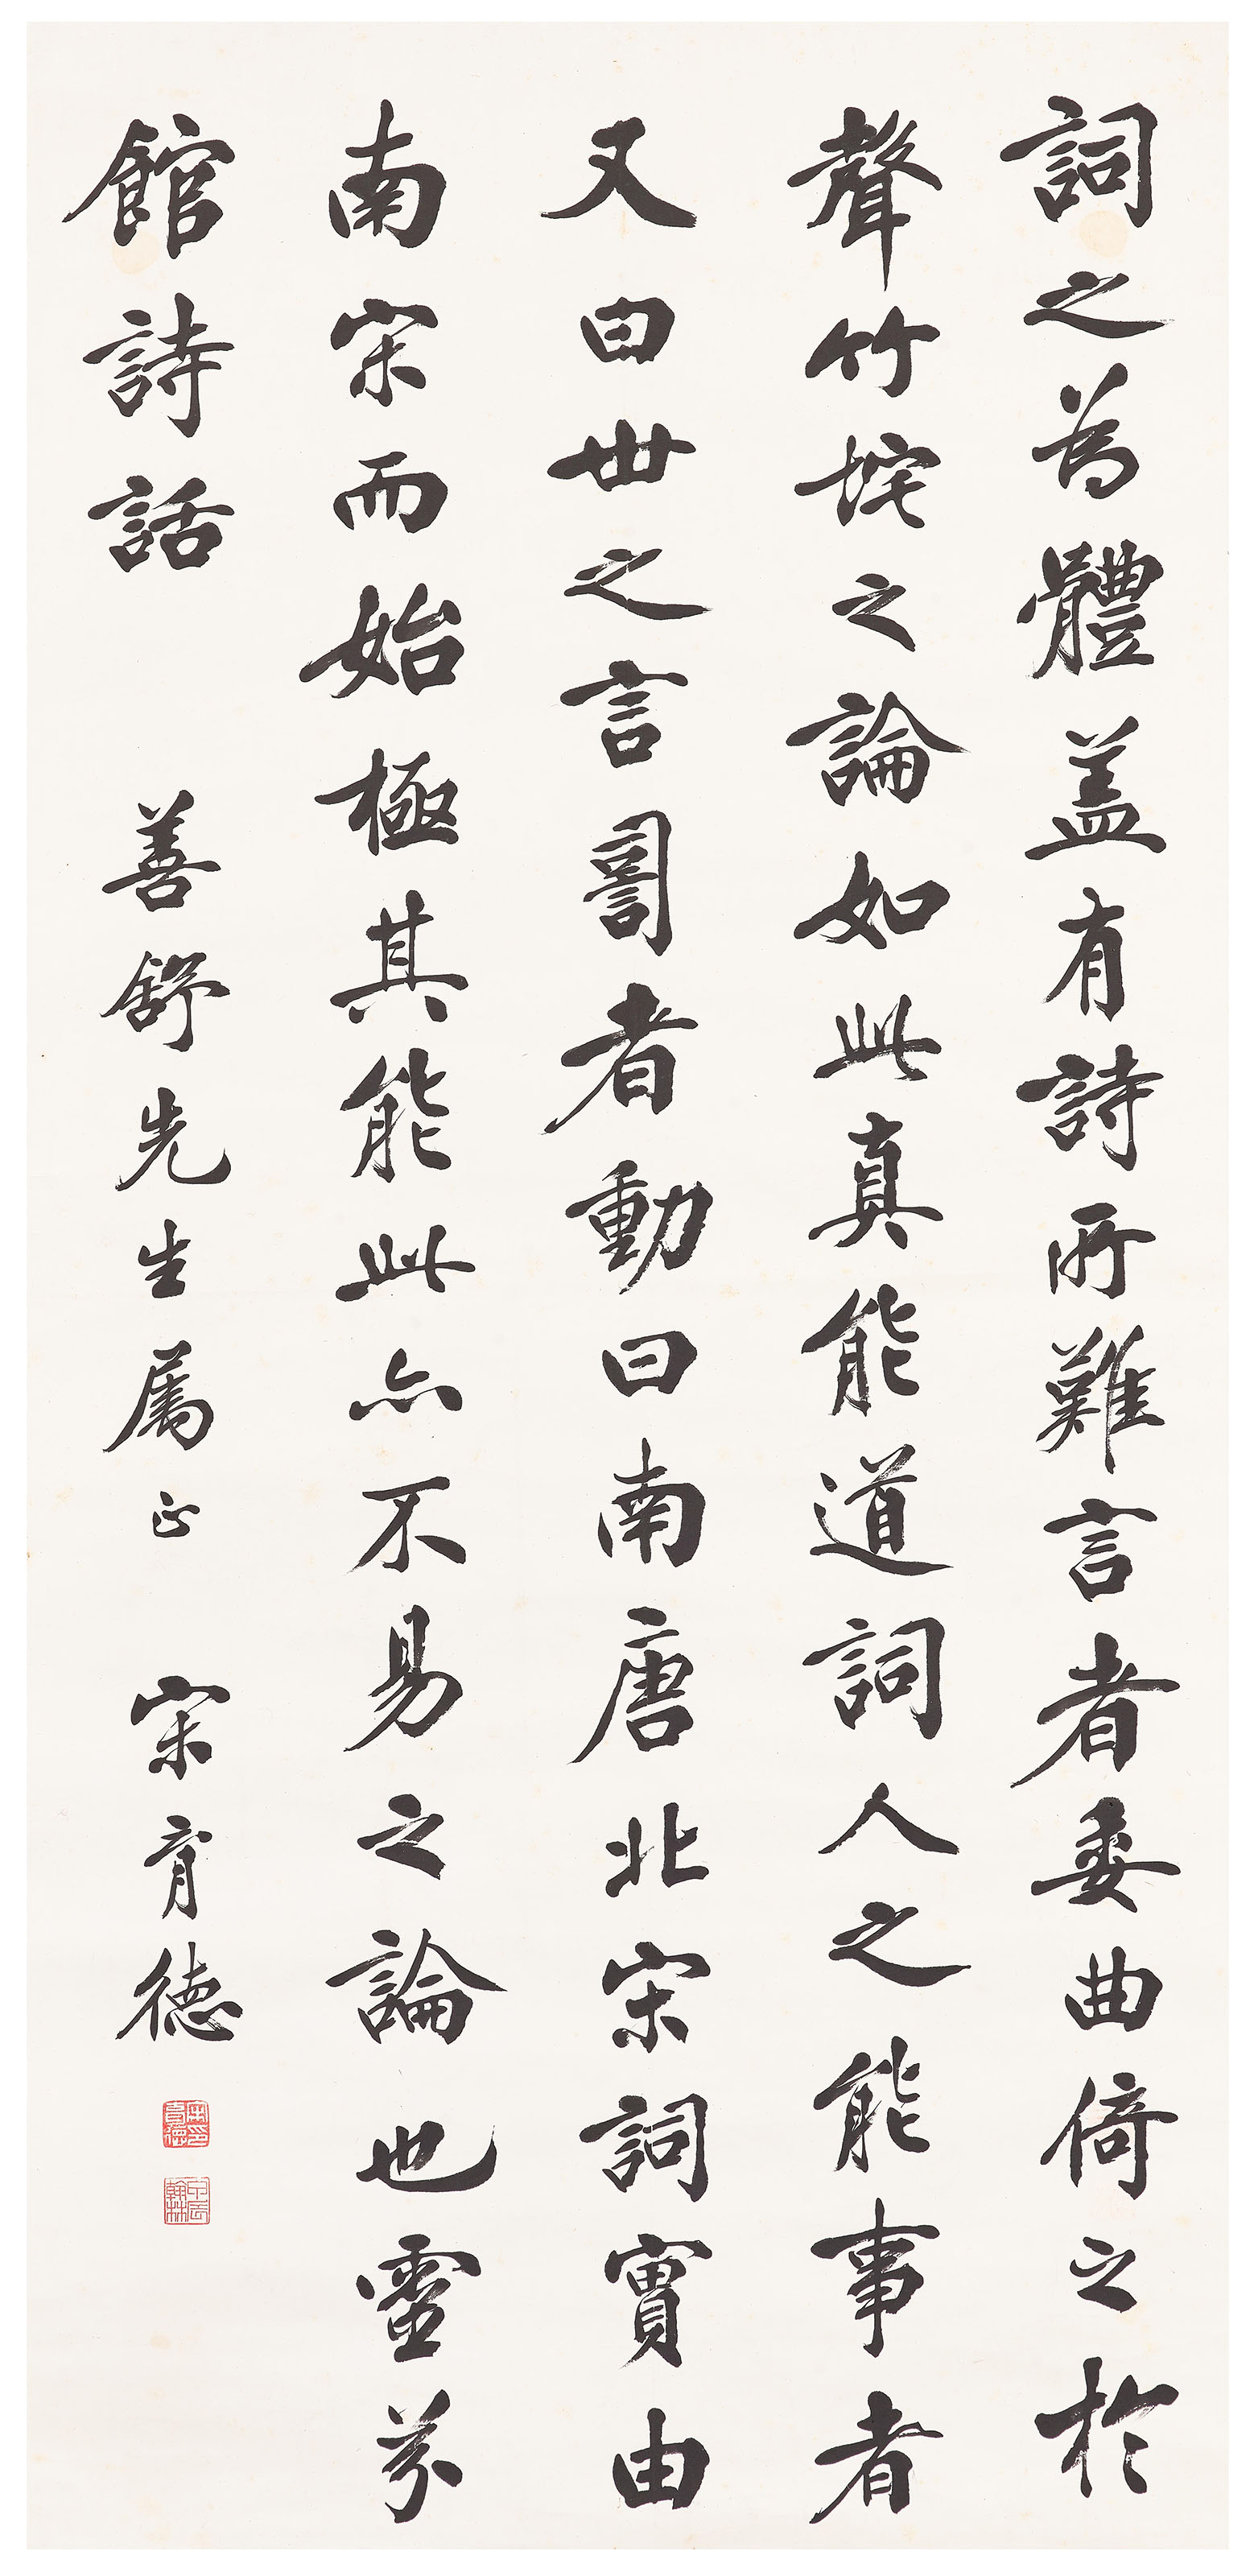 詞之為體盖有詩所難言者委曲倚之於
聲竹垞之論如此真能道詞人之能事者
又曰世之言詞者動曰南唐北宋詞實由
南宋而始極其能此亦不易之論也靈芬
館詩話
善舒先生属正
宋育德
宋育德印
甲辰翰林